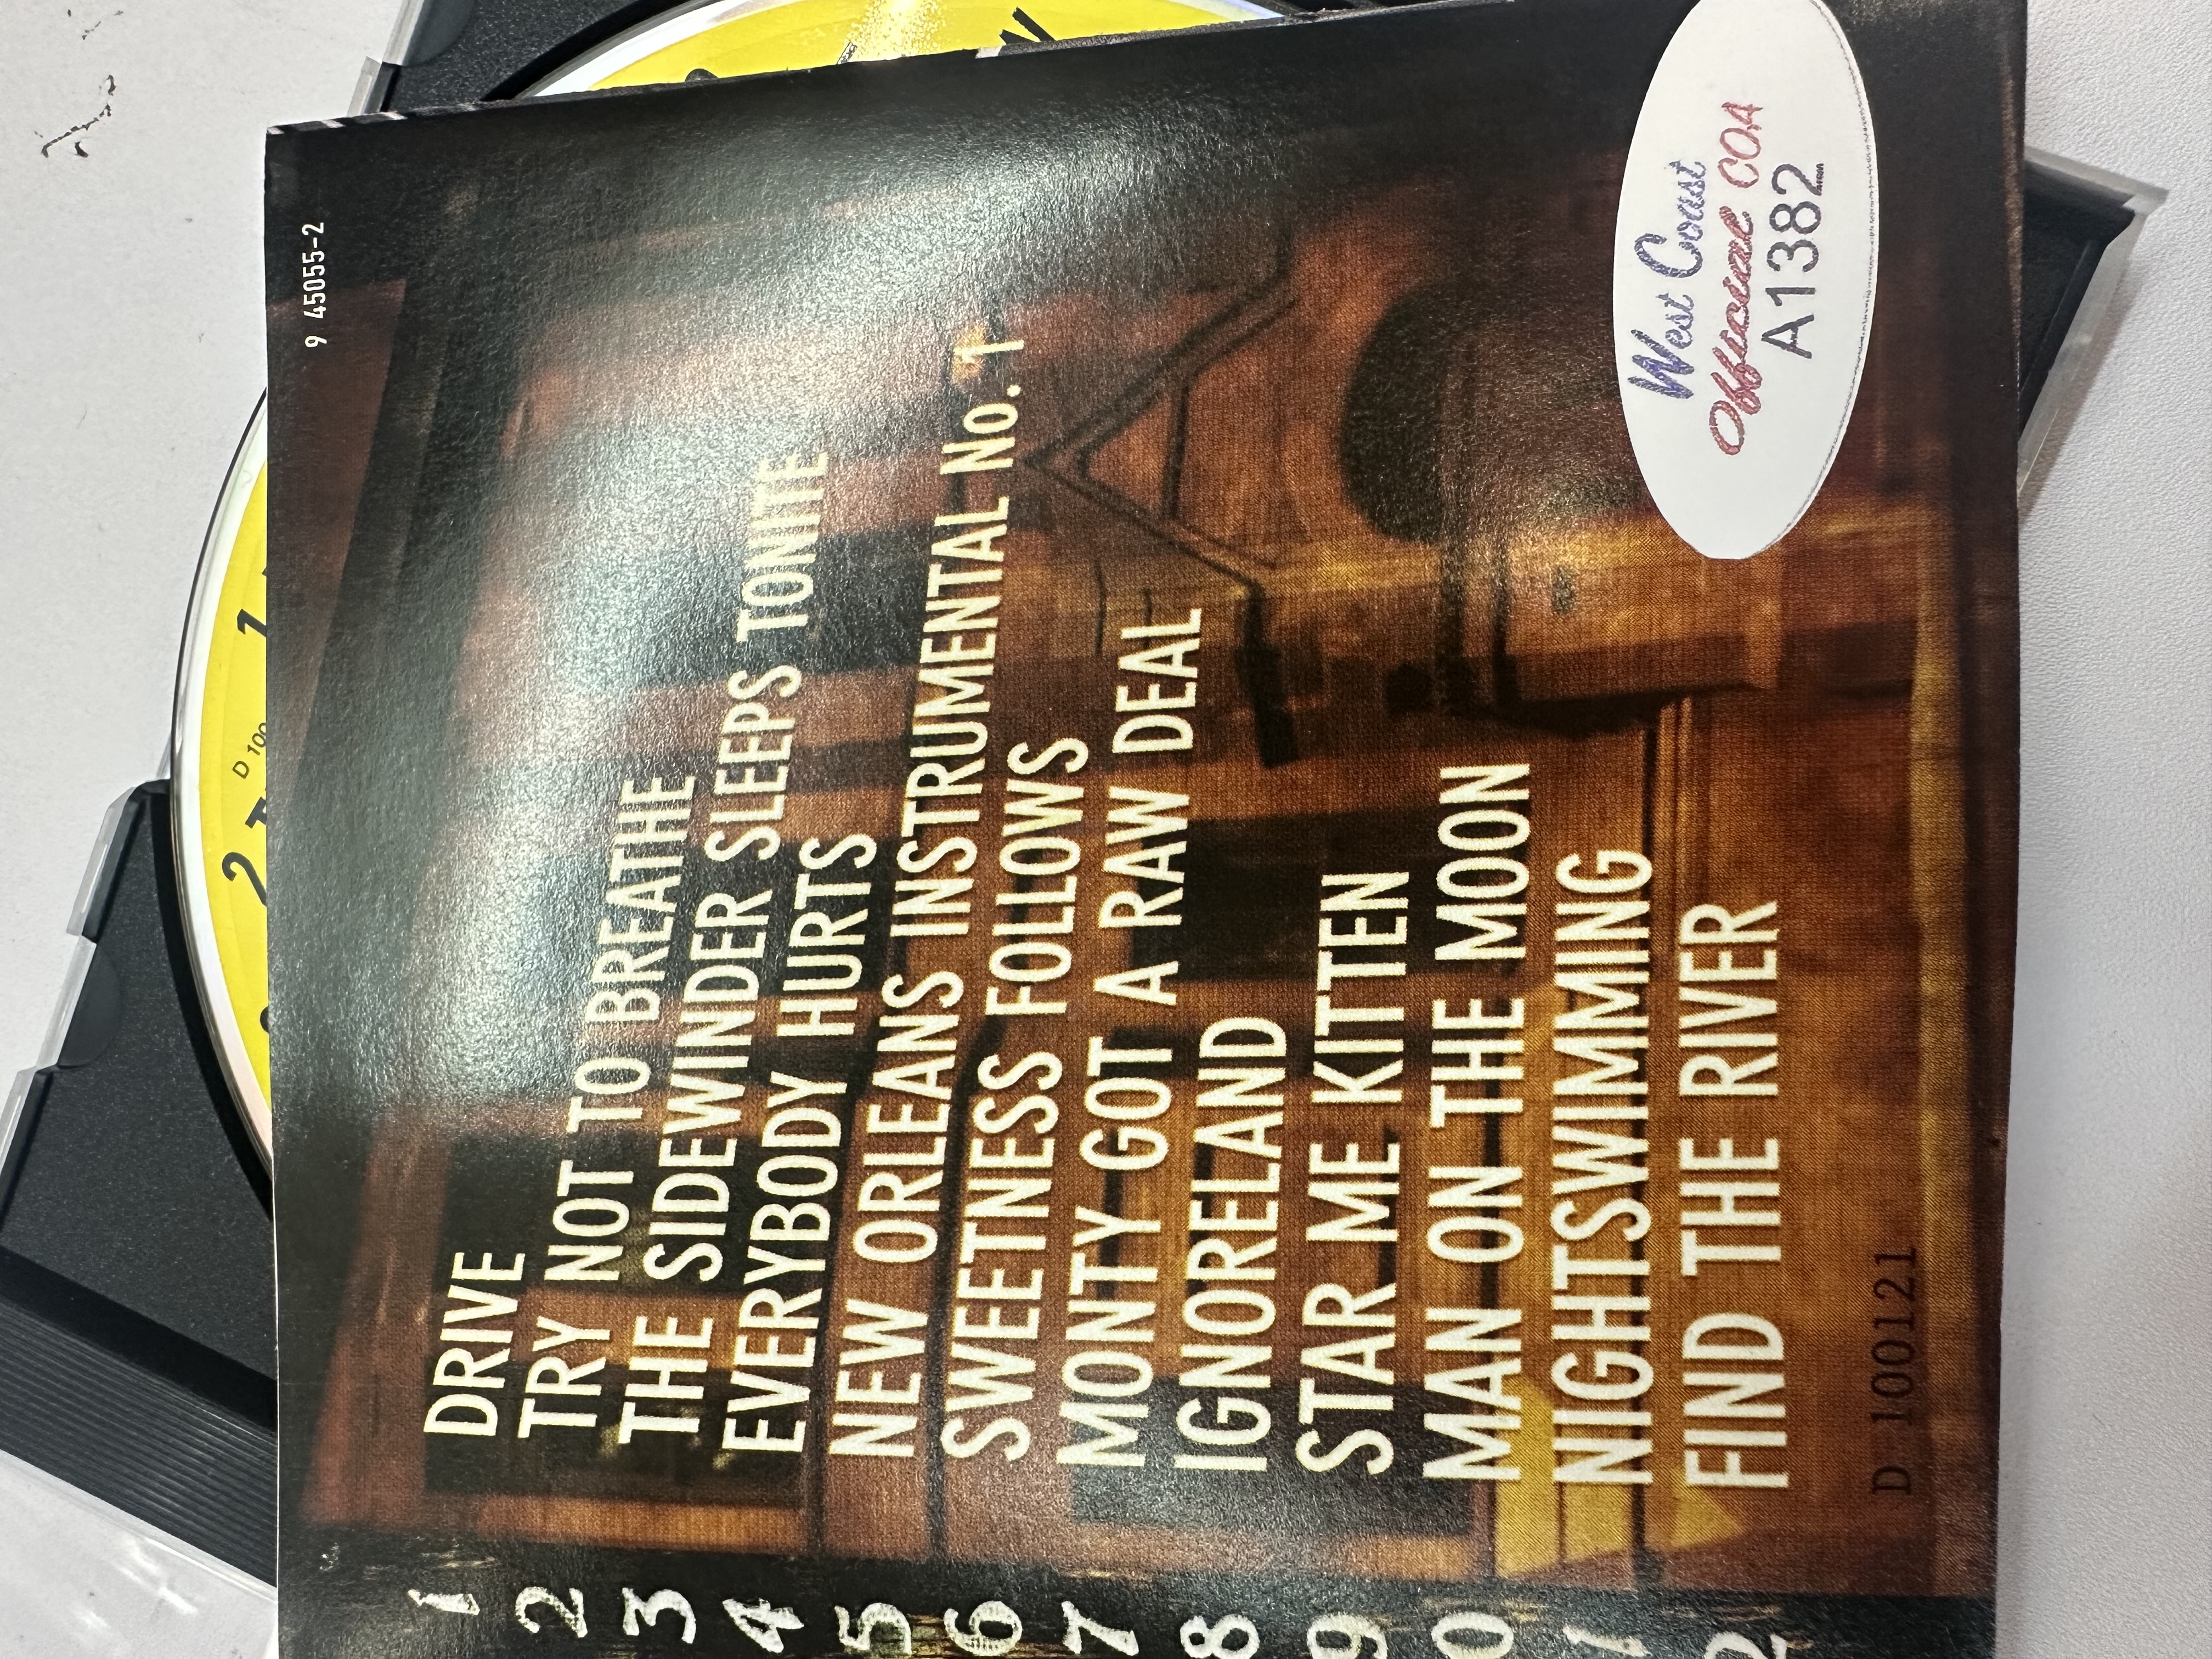 9 45055-2
1 DRIVE
2 TRY NOT TO BREATHE
3 THE SIDEWINDER SLEEPS TONITE
4 EVERYBODY HURTS
5 NEW ORLEANS INSTRUMENTAL No. 1
6 SWEETNESS FOLLOWS
7 MONTY GOT A RAW DEAL
8 IGNORELAND
9 STAR ME KITTEN
0 MAN ON THE MOON
1 NIGHTSWIMMING
2 FIND THE RIVER
D 100121
West Coast
Official COA
A1382
D 100
1
2